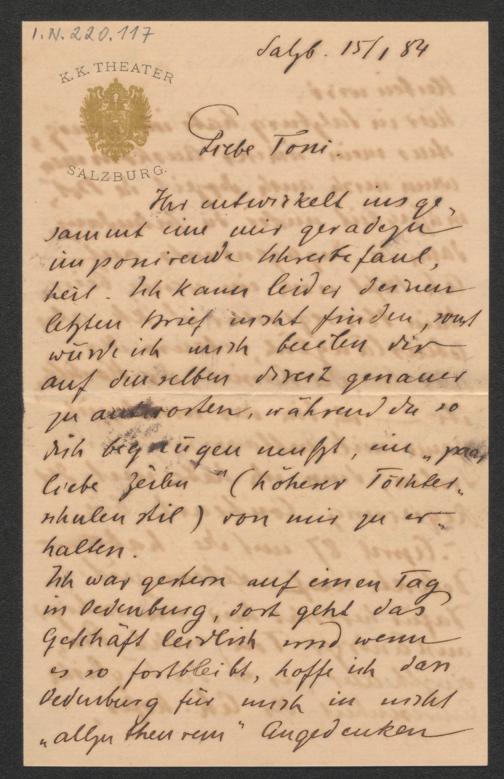 I.N. 220.117
K.K. THEATER
SALZBURG.
Salzb. 15/1 84
Liebe Toni.
Ihr entwickelt insge-
sammt eine mir geradezu
imponirende Schreibefaul,
heit. Ich kann leider deinen
letzten Brief nicht finden, sonst
würde ich mich beeilen dir
auf denselben direct genauer
zu antworten, während du so
dich begnügen mußt, ein „paar
liebe Zeilen" (höherer Töchter-
schulenstil) von mir zu er-
halten.
Ich war gestern auf einen Tag
in Oedenburg, dort geht das
Geschäft leidlich und wenn
es so fortbleibt, hoffe ich dass
Oedenburg für mich in nicht
„allzu theurem" Angedenken